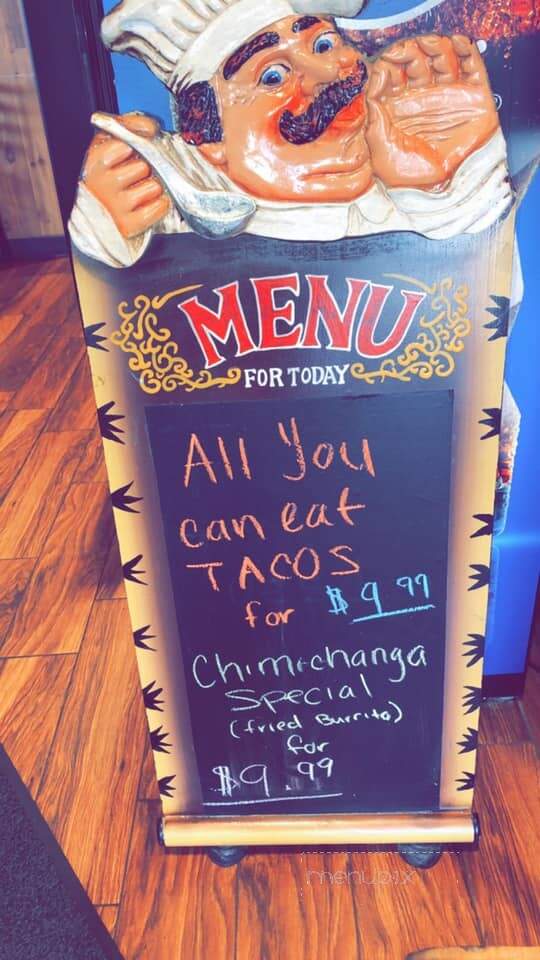 MENU
FOR TODAY
All You
can eat
TACOS
for $9.99
Chimichanga
Special
(fried Burrito)
for
$9.99
menupix